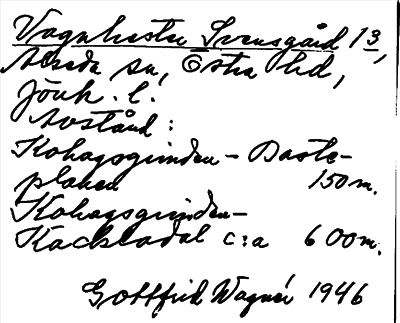 Vagnhester Svensgård 13,
Alseda sn, Östra hd,
Jönk. l.
Avstånd:
Kohagsgrinden - Daste-
planen 150 m.
Kohagsgrinden -
Kackladal c:a 600 m.
Gottfrid Wagnér 1946